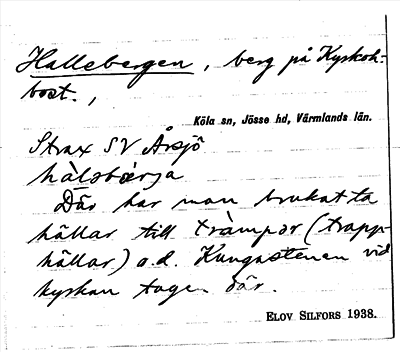 Hallebergen, berg på Kyrkoh-
bost.,
Köla sn, Jösse hd, Värmlands län.
Strax SV Årsjö
hàlsbærja
Där har man brukat ta
hällar till tràmpər (trapp-
hällar) o.d. Kungastenen vid
kyrkan togs där.
ELOV SILFORS 1938.